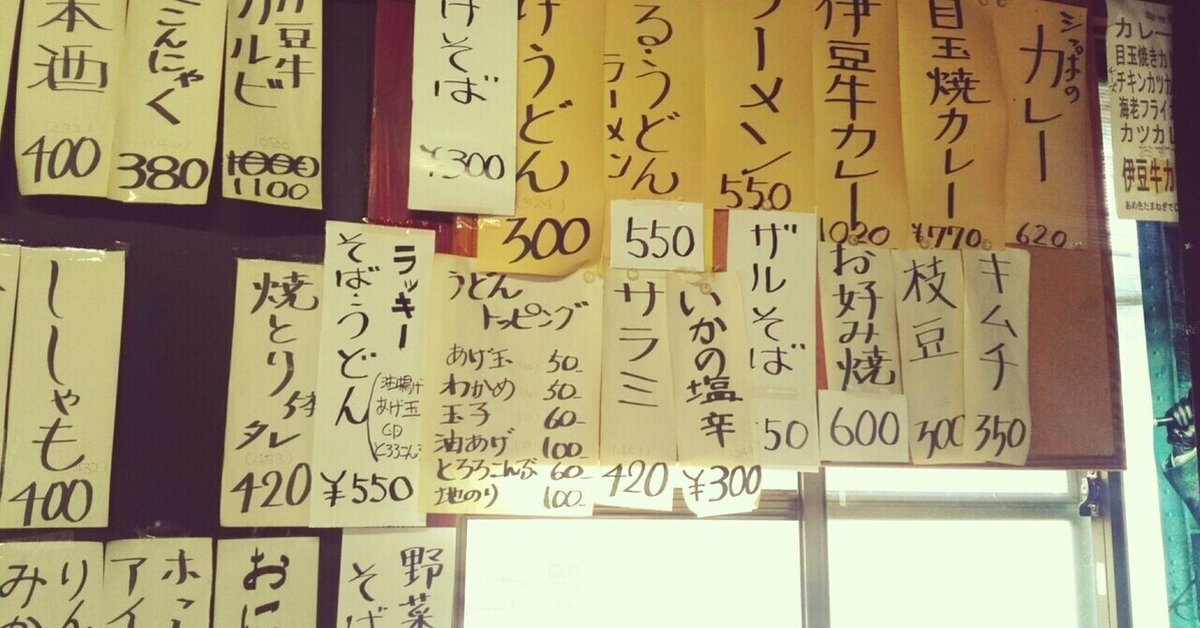 本酒
400
こんにゃく
380
豆牛
カルビ
1000
1100
けそば
¥300
けうどん
300
る・うどん
ラーメン
550
ラーメン
550
伊豆牛カレー
1020
目玉焼カレー
¥770
シッポの
カレー
620
カレー
目玉焼きカ
チキンカツカ
海老フライカ
カツカレ
伊豆牛カ
あめ色たまねぎで
ししゃも
400
焼とり
5本
タレ
420
ラッキー
そば・うどん
油揚げ
あげ玉
とろろこんぶ
¥550
うどん
トッピング
あげ玉 50-
わかめ 50-
玉子 60-
油あげ 100-
とろろこんぶ 60-
地のり 100-
サラミ
420
いかの塩辛
¥300
ザルそば
50
お好み焼
600
枝豆
300
キムチ
350
りん
みか
ホッ
アイ
おに
野菜
そば